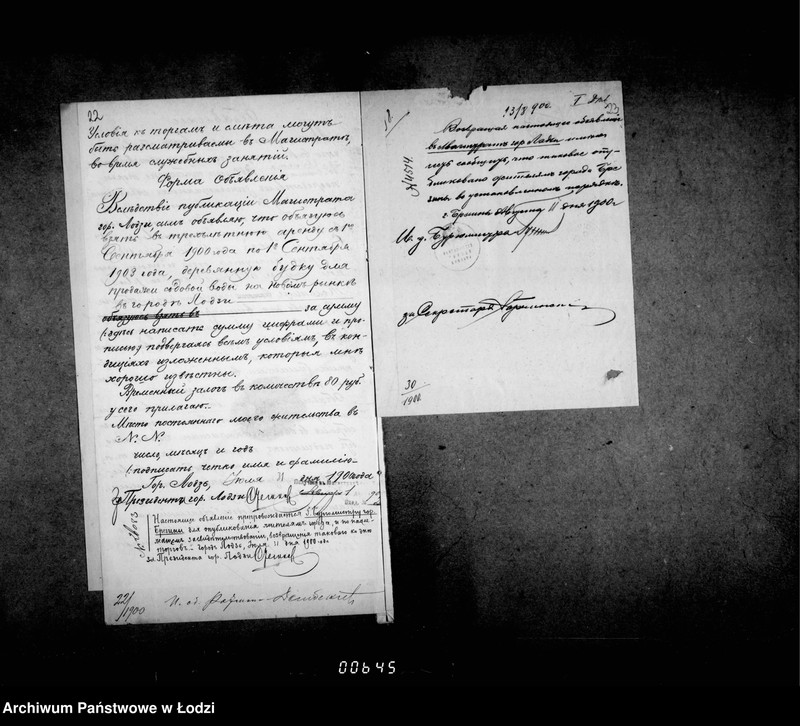 22
Условія къ торгамъ и смѣта могутъ
быть разсматриваемы въ Магистратѣ,
во время служебныхъ занятій.
Форма Объявленія
Вслѣдствіе публикаціи Магистрата
гор. Лодзи, симъ объявляю, что обязуюсь
взять въ трехлѣтнюю аренду съ 1го
Сентября 1900 года по 1е Сентября
1903 года, деревянную будку для
продажи содовой воды на новомъ рынкѣ
въ городѣ Лодзи
обязуюсь взять въ за сумму
(здѣсь написать сумму цифрами и про-
писью) подвергаясь всѣмъ условіямъ, въ кон-
диціяхъ изложеннымъ, которыя мнѣ
хорошо извѣстны.
Временный залогъ въ количествѣ 80 руб.
у сего прилагаю.
Мѣсто постояннаго моего жительства въ
N. N.
число, мѣсяцъ и годъ
(подписать четко имя и фамилію
Гор. Лодзь, Іюля 11 дня 1900 года
За Президента гор. Лодзи
Настоящее объявленіе препровождается Г. Бургомистру гор.
Брезины для опубликованія жителямъ
города Лодзь, Іюля 11 дня 1900 года
За Президента гор. Лодзи
22/1900
13/8 900. I
Возвращая настоящее объявленіе
въ Магистратъ гор. Лодзи имѣю
честь сообщить, что таковое опу-
бликовано жителямъ города Бре-
зинъ, въ установленномъ порядкѣ.
г. Брезины Августа 11 дня 1900 г
N 4514
И. д. Бургомистра
за Секретаря
30/1900
00645
Archiwum Państwowe w Łodzi